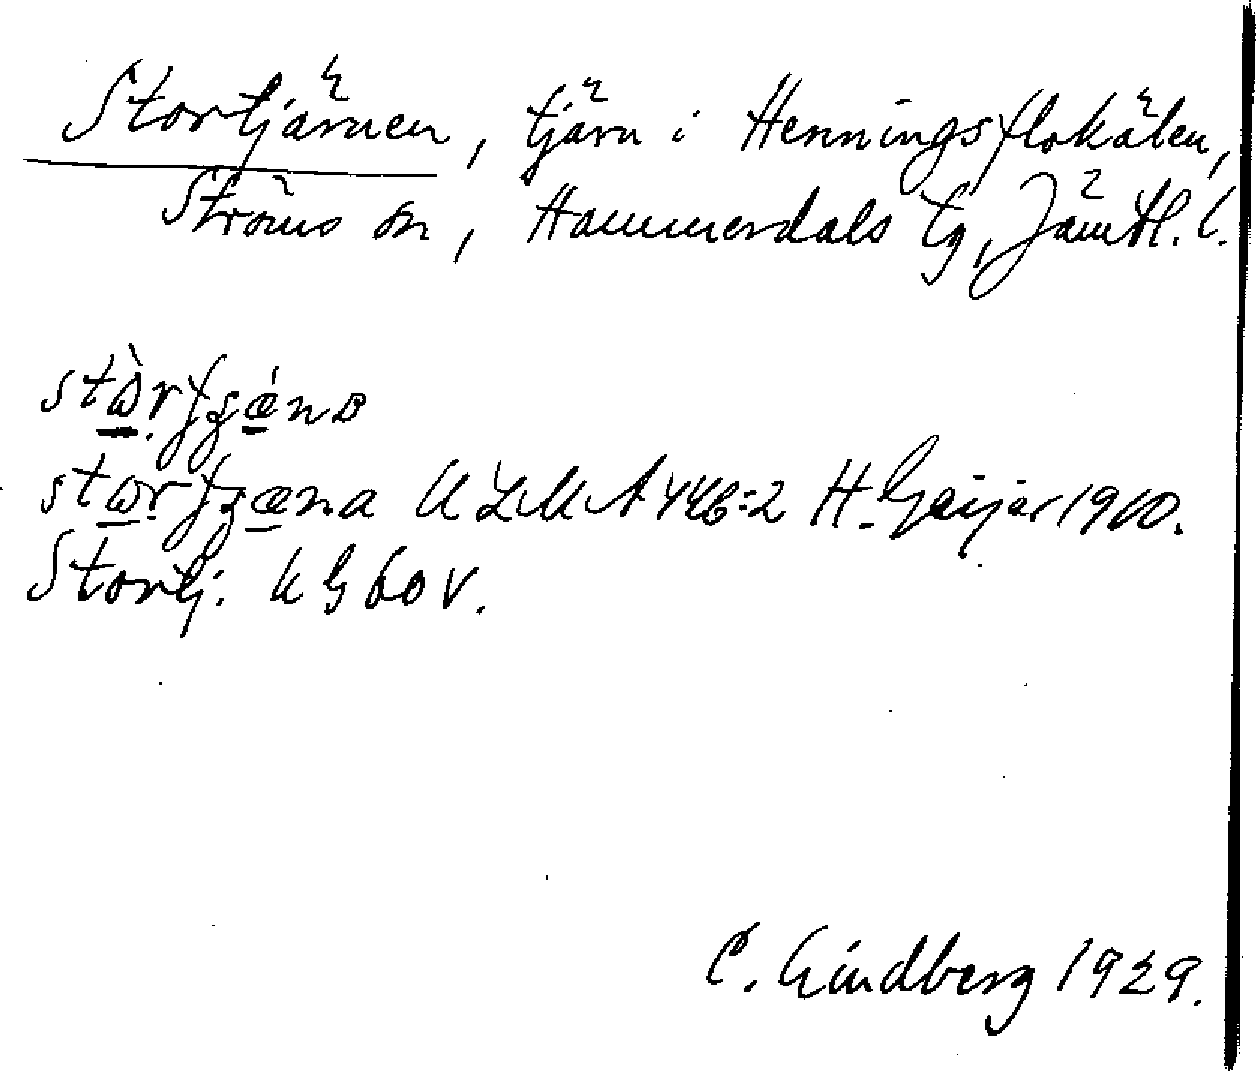 Stortjärnen, tjärn i Henningsflokälen,
Ströms sn, Hammerdals tg, Jämtl. l.
ULMA 446:2 H. Geijer 1910.
Stortj. k G 60 V.
C. Lindberg 1929.